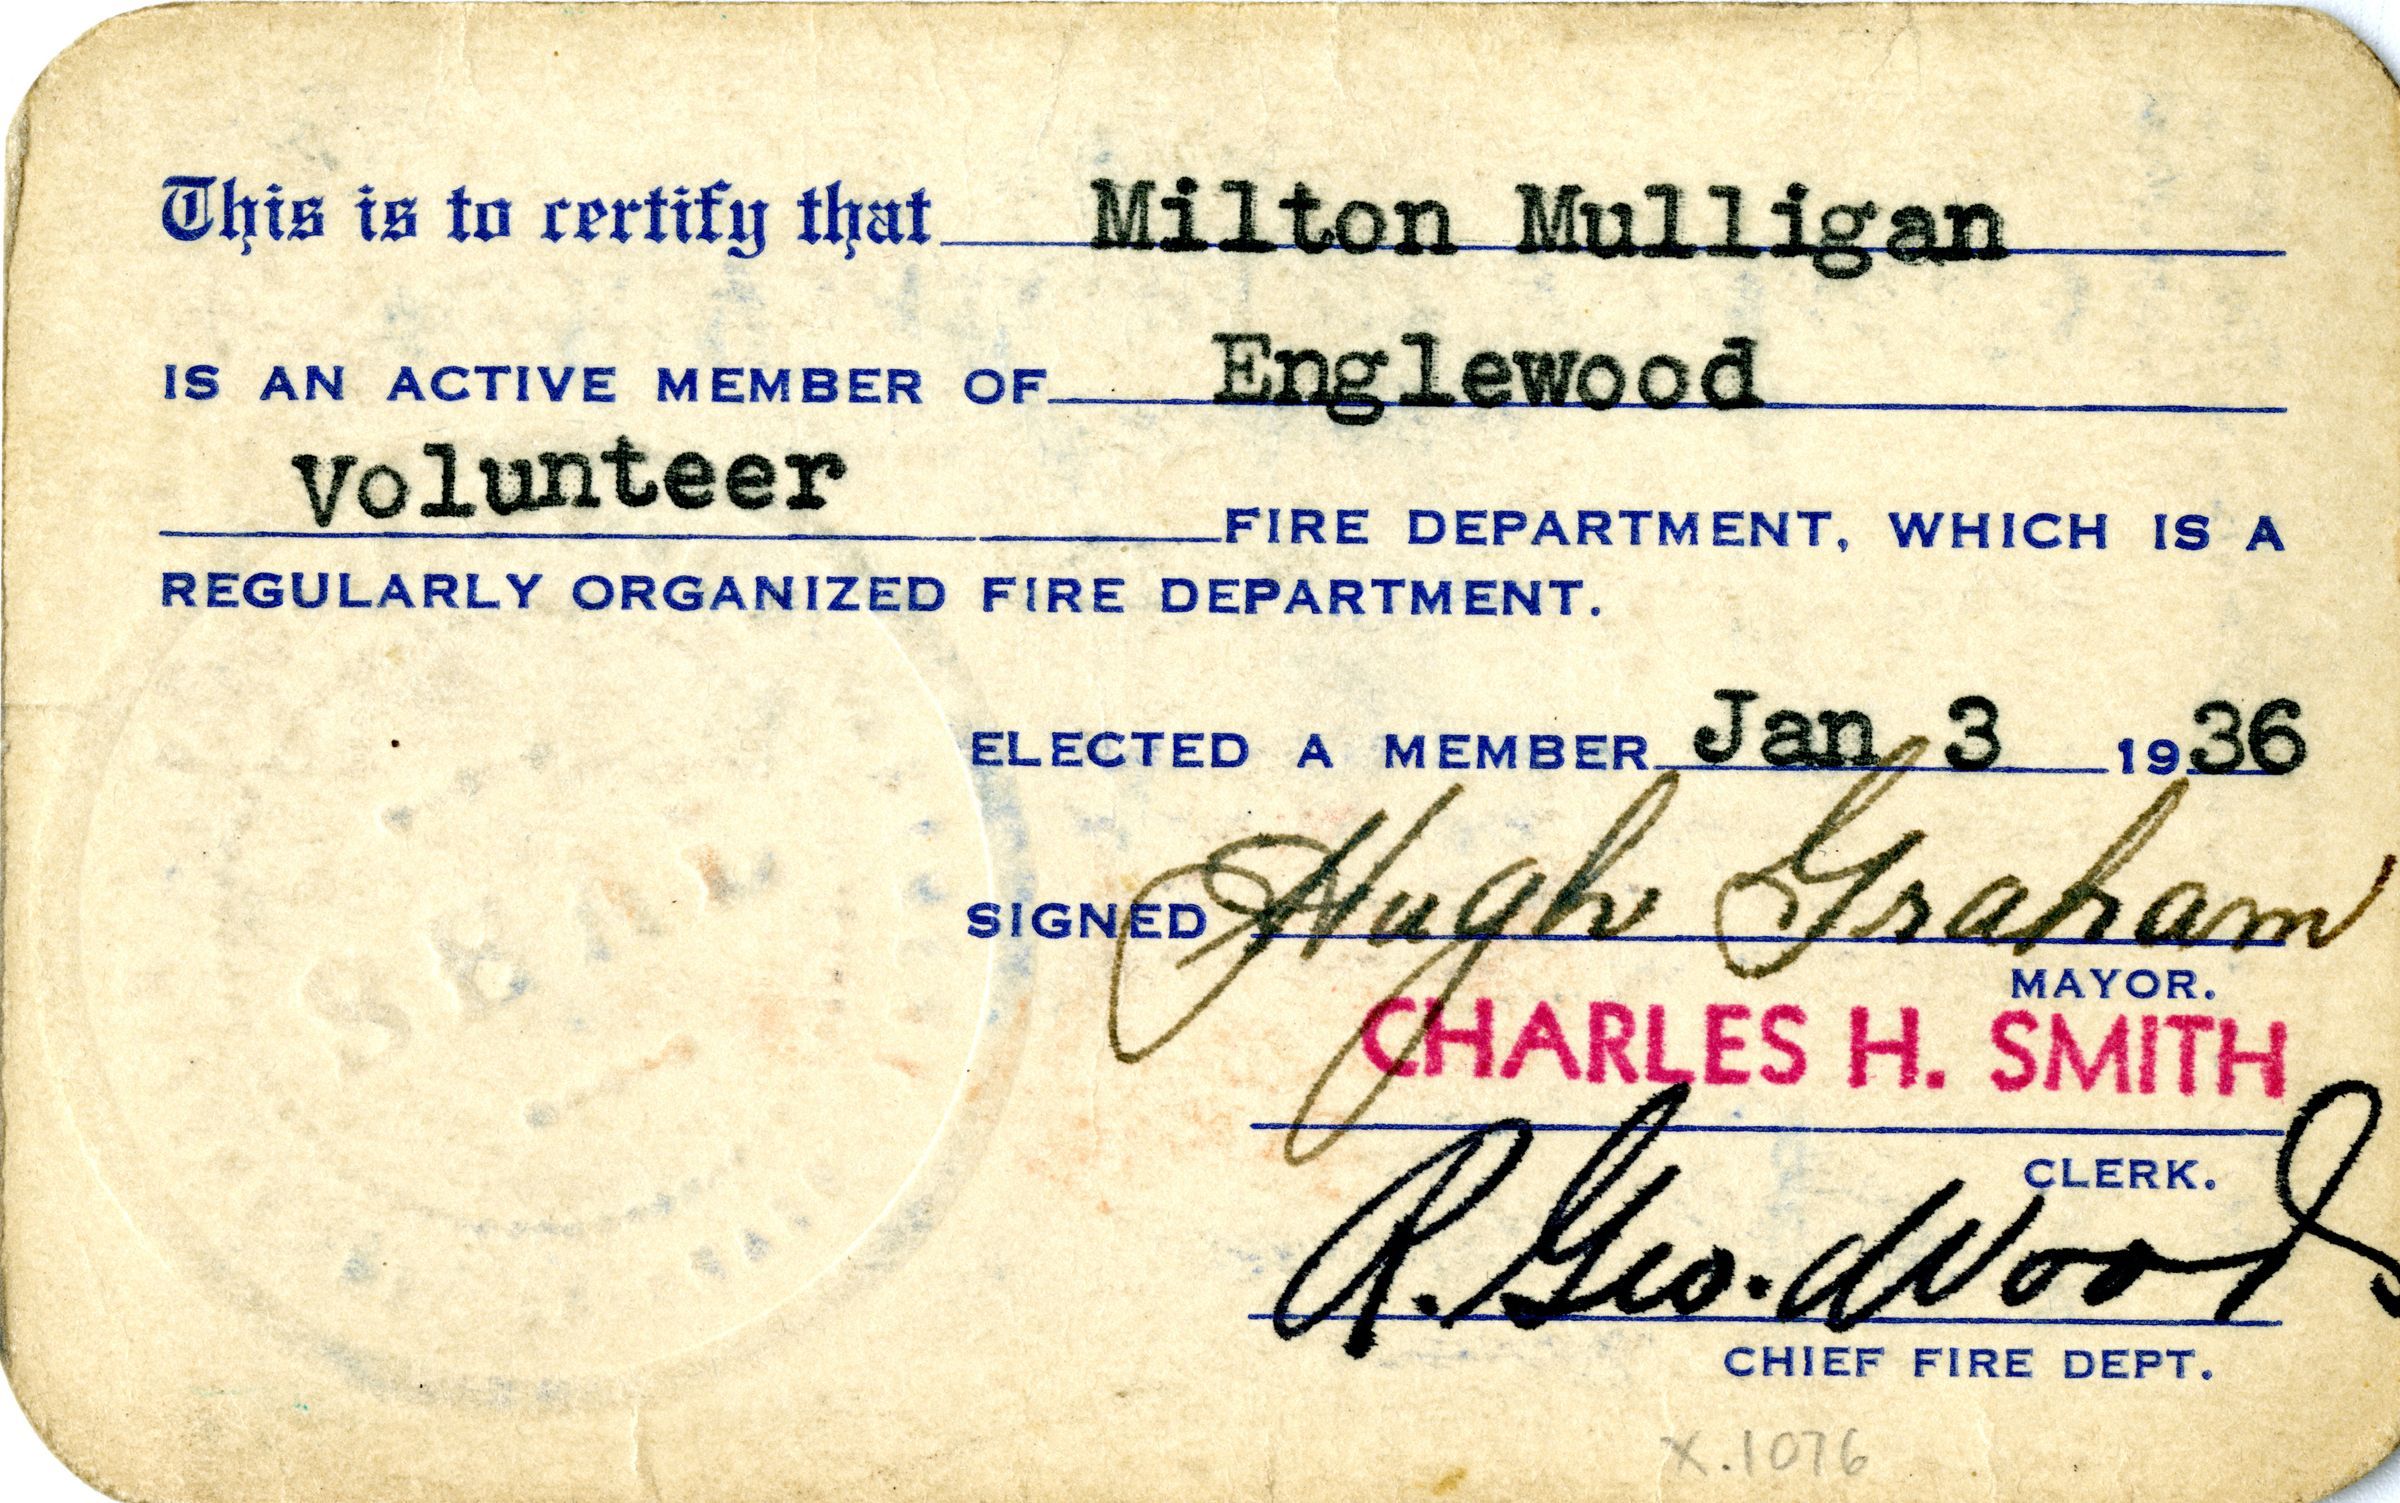 This is to certify that Milton Mulligan
IS AN ACTIVE MEMBER OF Englewood
Volunteer FIRE DEPARTMENT, WHICH IS A
REGULARLY ORGANIZED FIRE DEPARTMENT.
ELECTED A MEMBER Jan 3 1936
SIGNED Hugh Graham
MAYOR.
CHARLES H. SMITH
CLERK.
R. Geo. Woods
CHIEF FIRE DEPT.
X.1076
SEAL